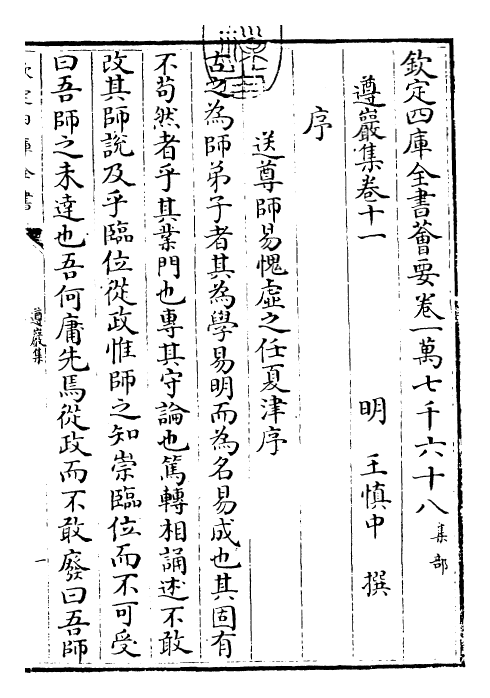 欽定四庫全書薈要卷一萬七千六十八集部
遵巖集卷十一
明王慎中撰
序
送尊師易愧虛之任夏津序
古之為師弟子者其為學易明而為名易成也其固有
不苟然者乎其業門也專其守論也篤轉相誦述不敢
改其師說及乎臨位從政惟師之知崇臨位而不可受
曰吾師之未達也吾何庸先焉從政而不敢廢曰吾師
欽定四庫全書
遵巖集
一